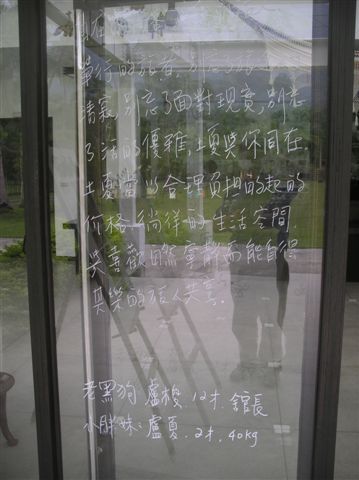 在
單行的旅者,別忘了
清寂,別忘了面對現實,別忘
了活的優雅,土夏與你同在.
土夏當以合理負担的起的
价格,徜徉的生活空間.
與喜歡自然寧靜而能自得
其樂的旅人共享.
老黑狗:盧梭.12才.舘長
小胖妹:盧夏.2才,40kg